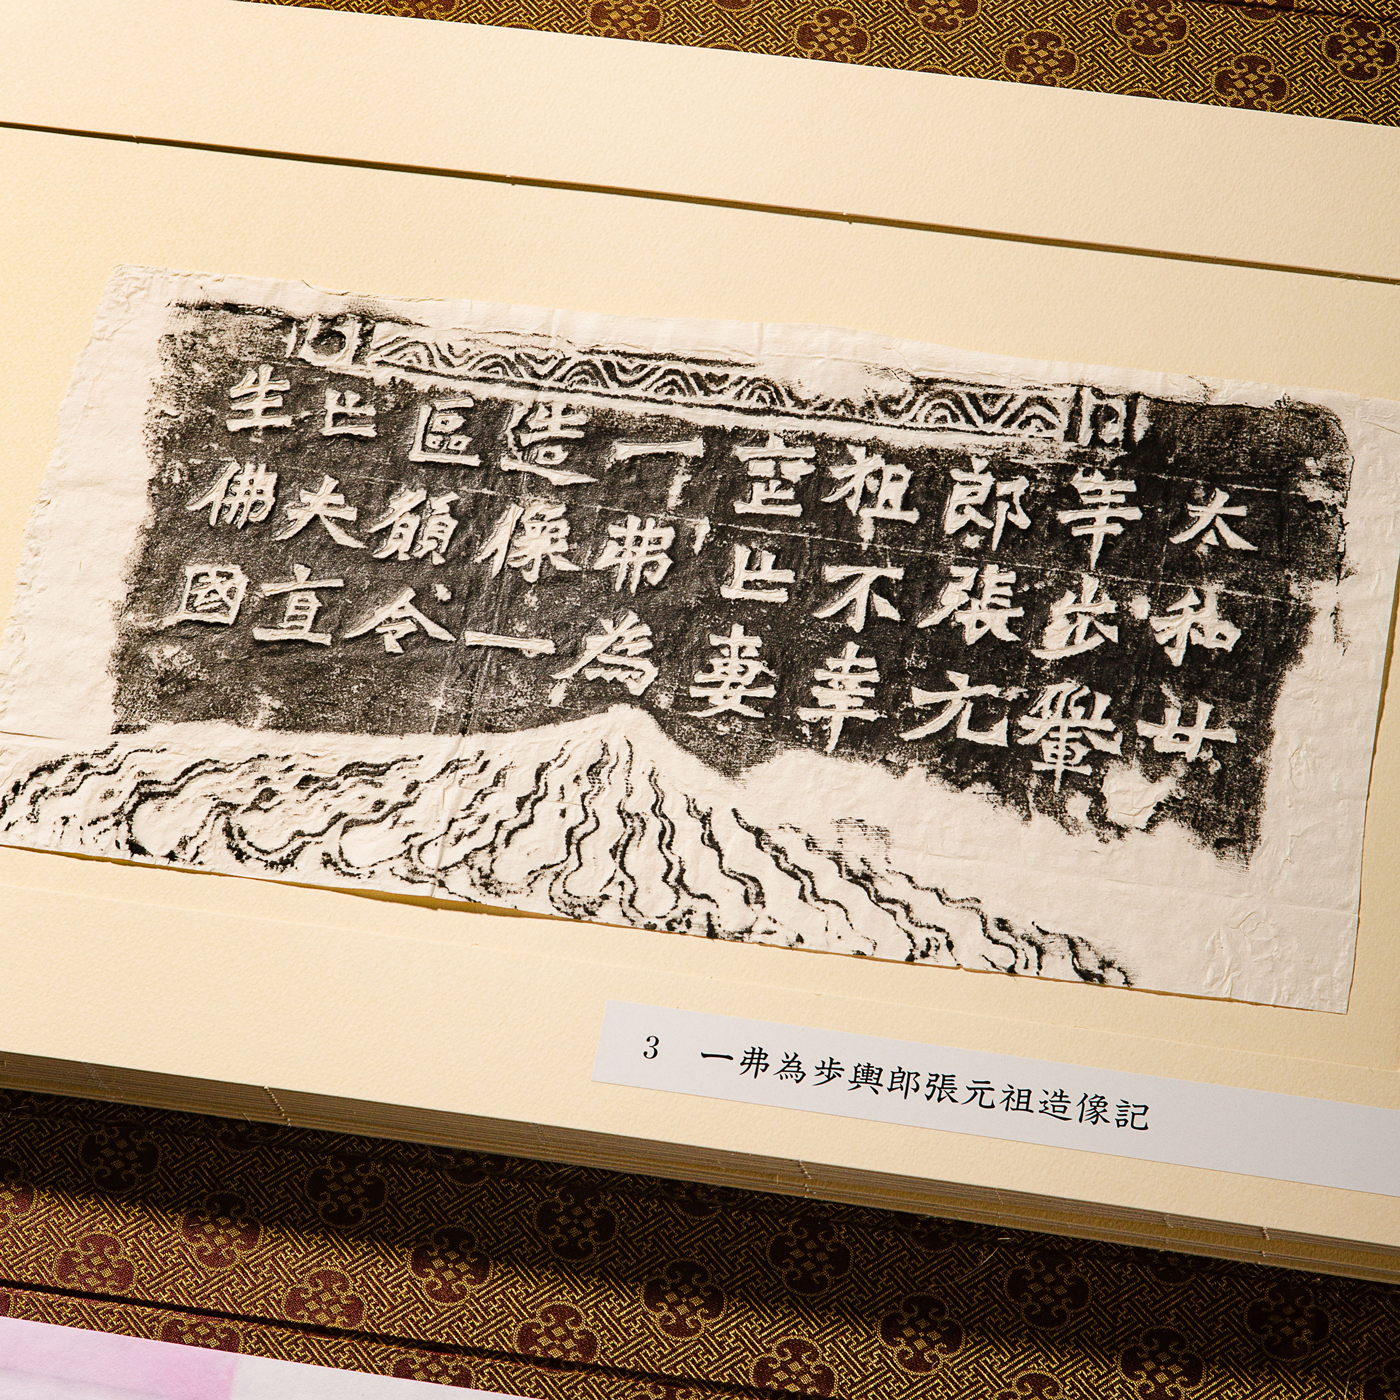 太和廿
年步轝
郎張元
祖不幸
喪亡妻
一弗為
造像一
區願令
亡夫直
生佛國
3 一弗為歩輿郎張元祖造像記